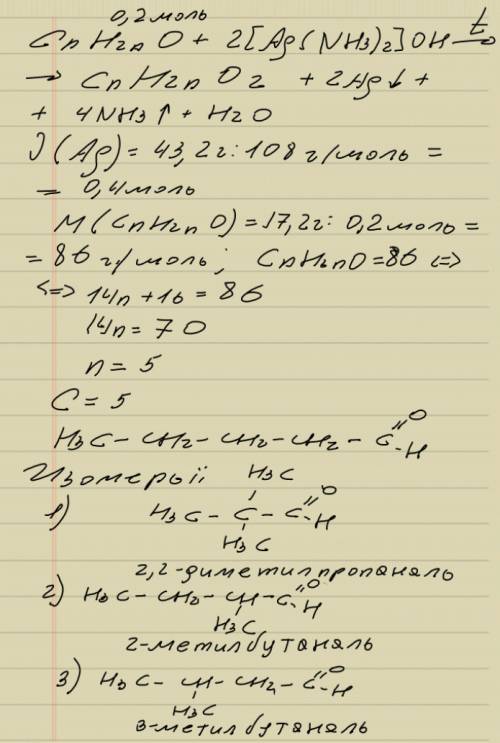 0,2 моль
CnH2nO + 2[Ag(NH3)2]OH t→
→ CnH2nO2 + 2Ag↓ +
+ 4NH3↑ + H2O
ν(Ag) = 43,2г : 108 г/моль =
= 0,4 моль
M(CnH2nO) = 17,2г : 0,2 моль =
= 86 г/моль; CnH2nO = 86 <=>
<=> 14n + 16 = 86
14n = 70
n = 5
C = 5
H3C - CH2 - CH2 - CH2 - C =O -H
Изомеры:
H3C
1) H3C - C - C =O -H
H3C
2,2-диметилпропаналь
2) H3C - CH2 - CH - C =O -H
H3C
2-метилбутаналь
3) H3C - CH - CH2 - C =O -H
H3C
3-метилбутаналь